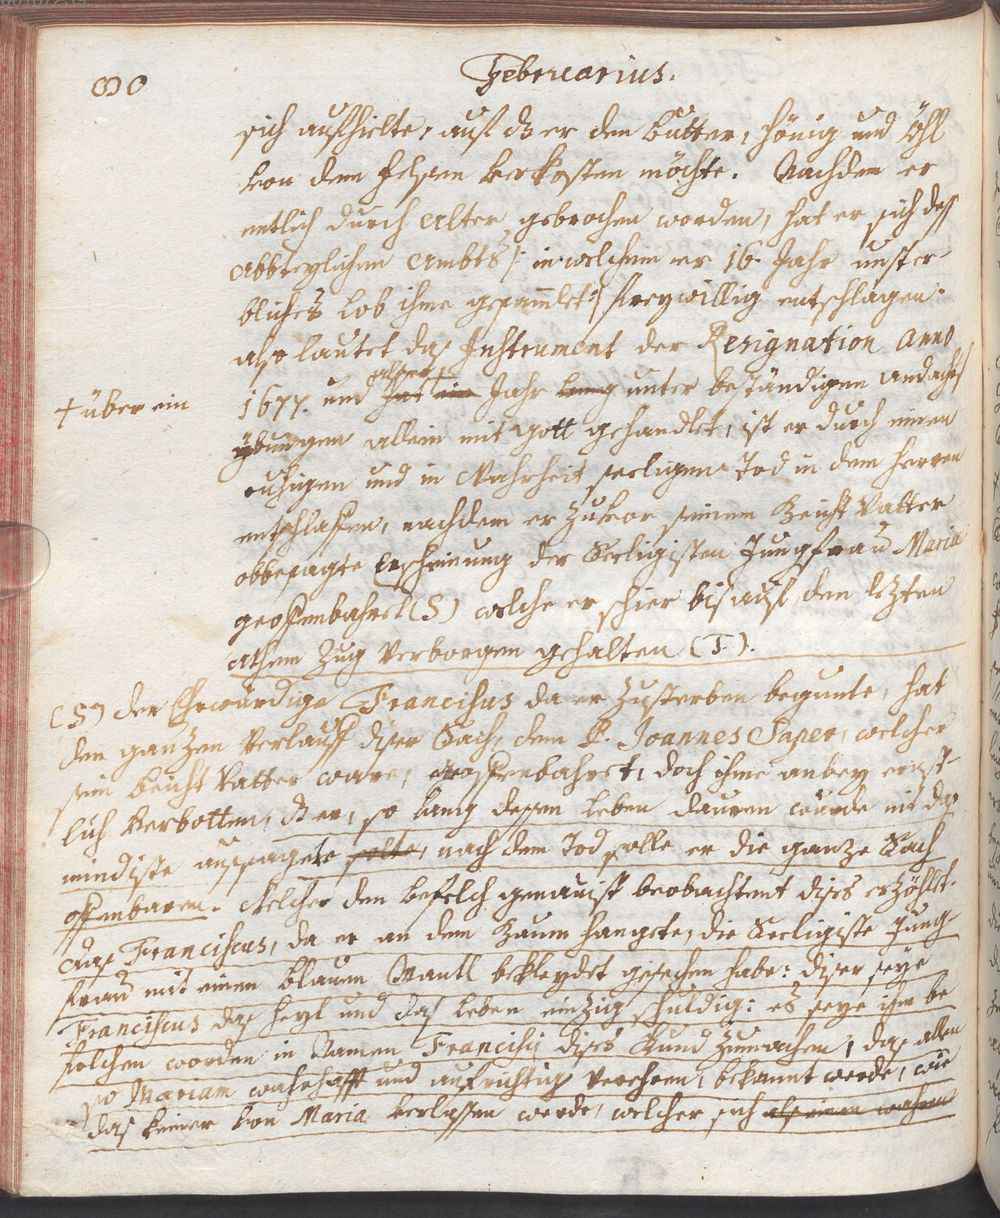 Februarius.
sich aufhielte, auf dz er den butter, hönig und öhl
von dem felsen verkosten möchte. Nachdem er
entlich durch alter gebrochen worden, hat er sich deß
Abbteylichen Ambts /: in welchem er 16. Jahr unster-
bliches lob ihme gesam̄let :/ freywillig entschlagen.
also lautet das Instrument der Resignation Anno
1677. und hat ein alßer + Jahr lang unter beständigen andachts
+ über ein
übungen allein mit gott gehandlet, ist er durch einen
ruhigen und in Wahrheit seeligen Tod in dem herren
entschlaffen, nachdem er zuvor seinem Beicht Vatter
obbesagte erscheinung der Seeligisten Jungfrau Maria
geoffenbahret (S) welche er schier bis auf den lezten
Athem zug verborgen gehalten (T).
(S) der Ehrwürdige Franciscus da er zusterben begunte, hat
den ganzen verlauff diser Sach, dem P. Joannes Saper, welcher
sein beicht Vatter ware, geoffenbahret, doch ihme anbey ernst-
lich verbotten, dz er, so lang dessen leben dauren wurde nit das
mindiste aussagete solte, nach dem Tod solle er die ganze Sach
offenbaren. Welcher den befelch genauist beobachtent dises erzöhlet.
das Franciscus, da er an dem Baum hangete, die Seeligiste Jung-
frau mit einen blauen Mantl bekleydet gesechen habe: diser seye
Franciscus das heyl und das leben einzig schuldig: es seye ihm be
folchen worden in Namen Francisci dises Kund zumachen, das allen
so Mariam wahrhafft und aufrichtig verehren, bekannt werde, wie
das keiner von Maria verlassen werde, welcher sich als einen wahren